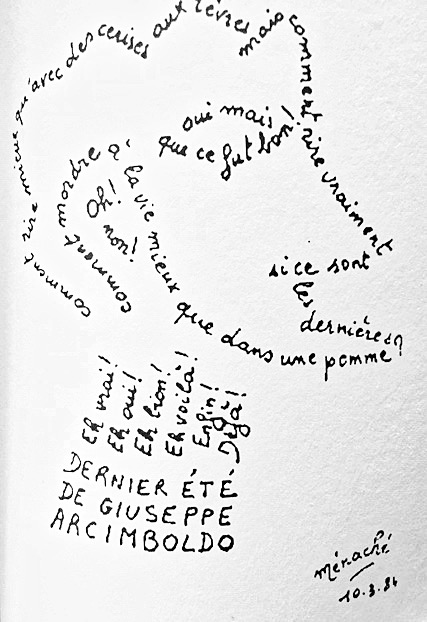 comment rire mieux qu'avec des cerises aux lèvres mais comment rire vraiment
si ce sont
les
dernières?
oui mais
que ce fut bon!
comment mordre à la vie mieux que dans une pomme?
Oh!
non!
Eh vrai!
Eh oui!
Eh bien!
Eh voilà!
Enfin!
Déjà!
DERNIER ÉTÉ
DE GIUSEPPE
ARCIMBOLDO
ménaché
10.3.84